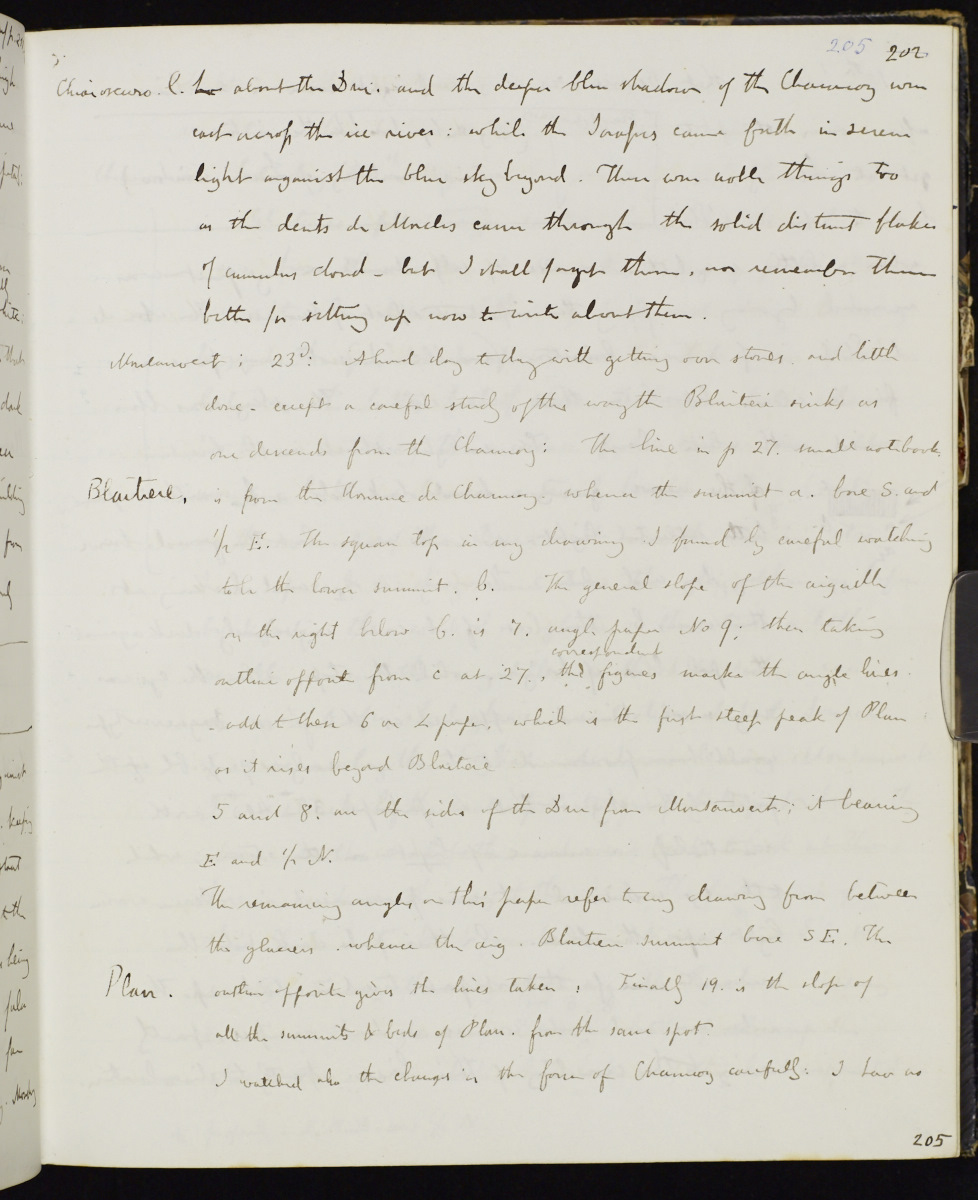 205 202
Chiaroscuro. C. about the Dru. and the deeper blue shadow of the Charmoz were
cast across the ice river: while the Jorasses came forth in serene
light against the blue sky beyond. There were noble things too
as the dents de Morcles came through the solid distant flakes
of cumulus cloud - but I shall forget them, nor remember them
better for sitting up now to write about them.
Montanvert; 23d: A hard day today with getting over stones. and little
done - except a careful study of the way the Blaitiere sinks as
one descends from the Charmoz: the line in p 27. small notebook,
Blaitiere, is from the Homme de Charmoz. whence the summit a. bore S. and
1/2 E. The square top in my drawing I found by careful watching
to be the lower summit. b. The general slope of the aiguille
on the right below b. is 7. angle paper No 9; then taking
correspondent
outline opposite from c at 27., the figures mark the angle lines.
- add to these 6 on L paper, which is the first steep peak of Plan
as it rises beyond Blaitiere
5 and 8. are the sides of the Dru from Montanvert; it bearing
E and 1/2 N.
The remaining angles on this paper refer to my drawing from between
the glaciers. whence the aig. Blaitiere summit bore SE. The
Plan. outline opposite gives the lines taken; Finally 19. is the slope of
all the summits & beds of Plan. from the same spot.
I watched also the changes in the form of Charmoz carefully: I saw as
205